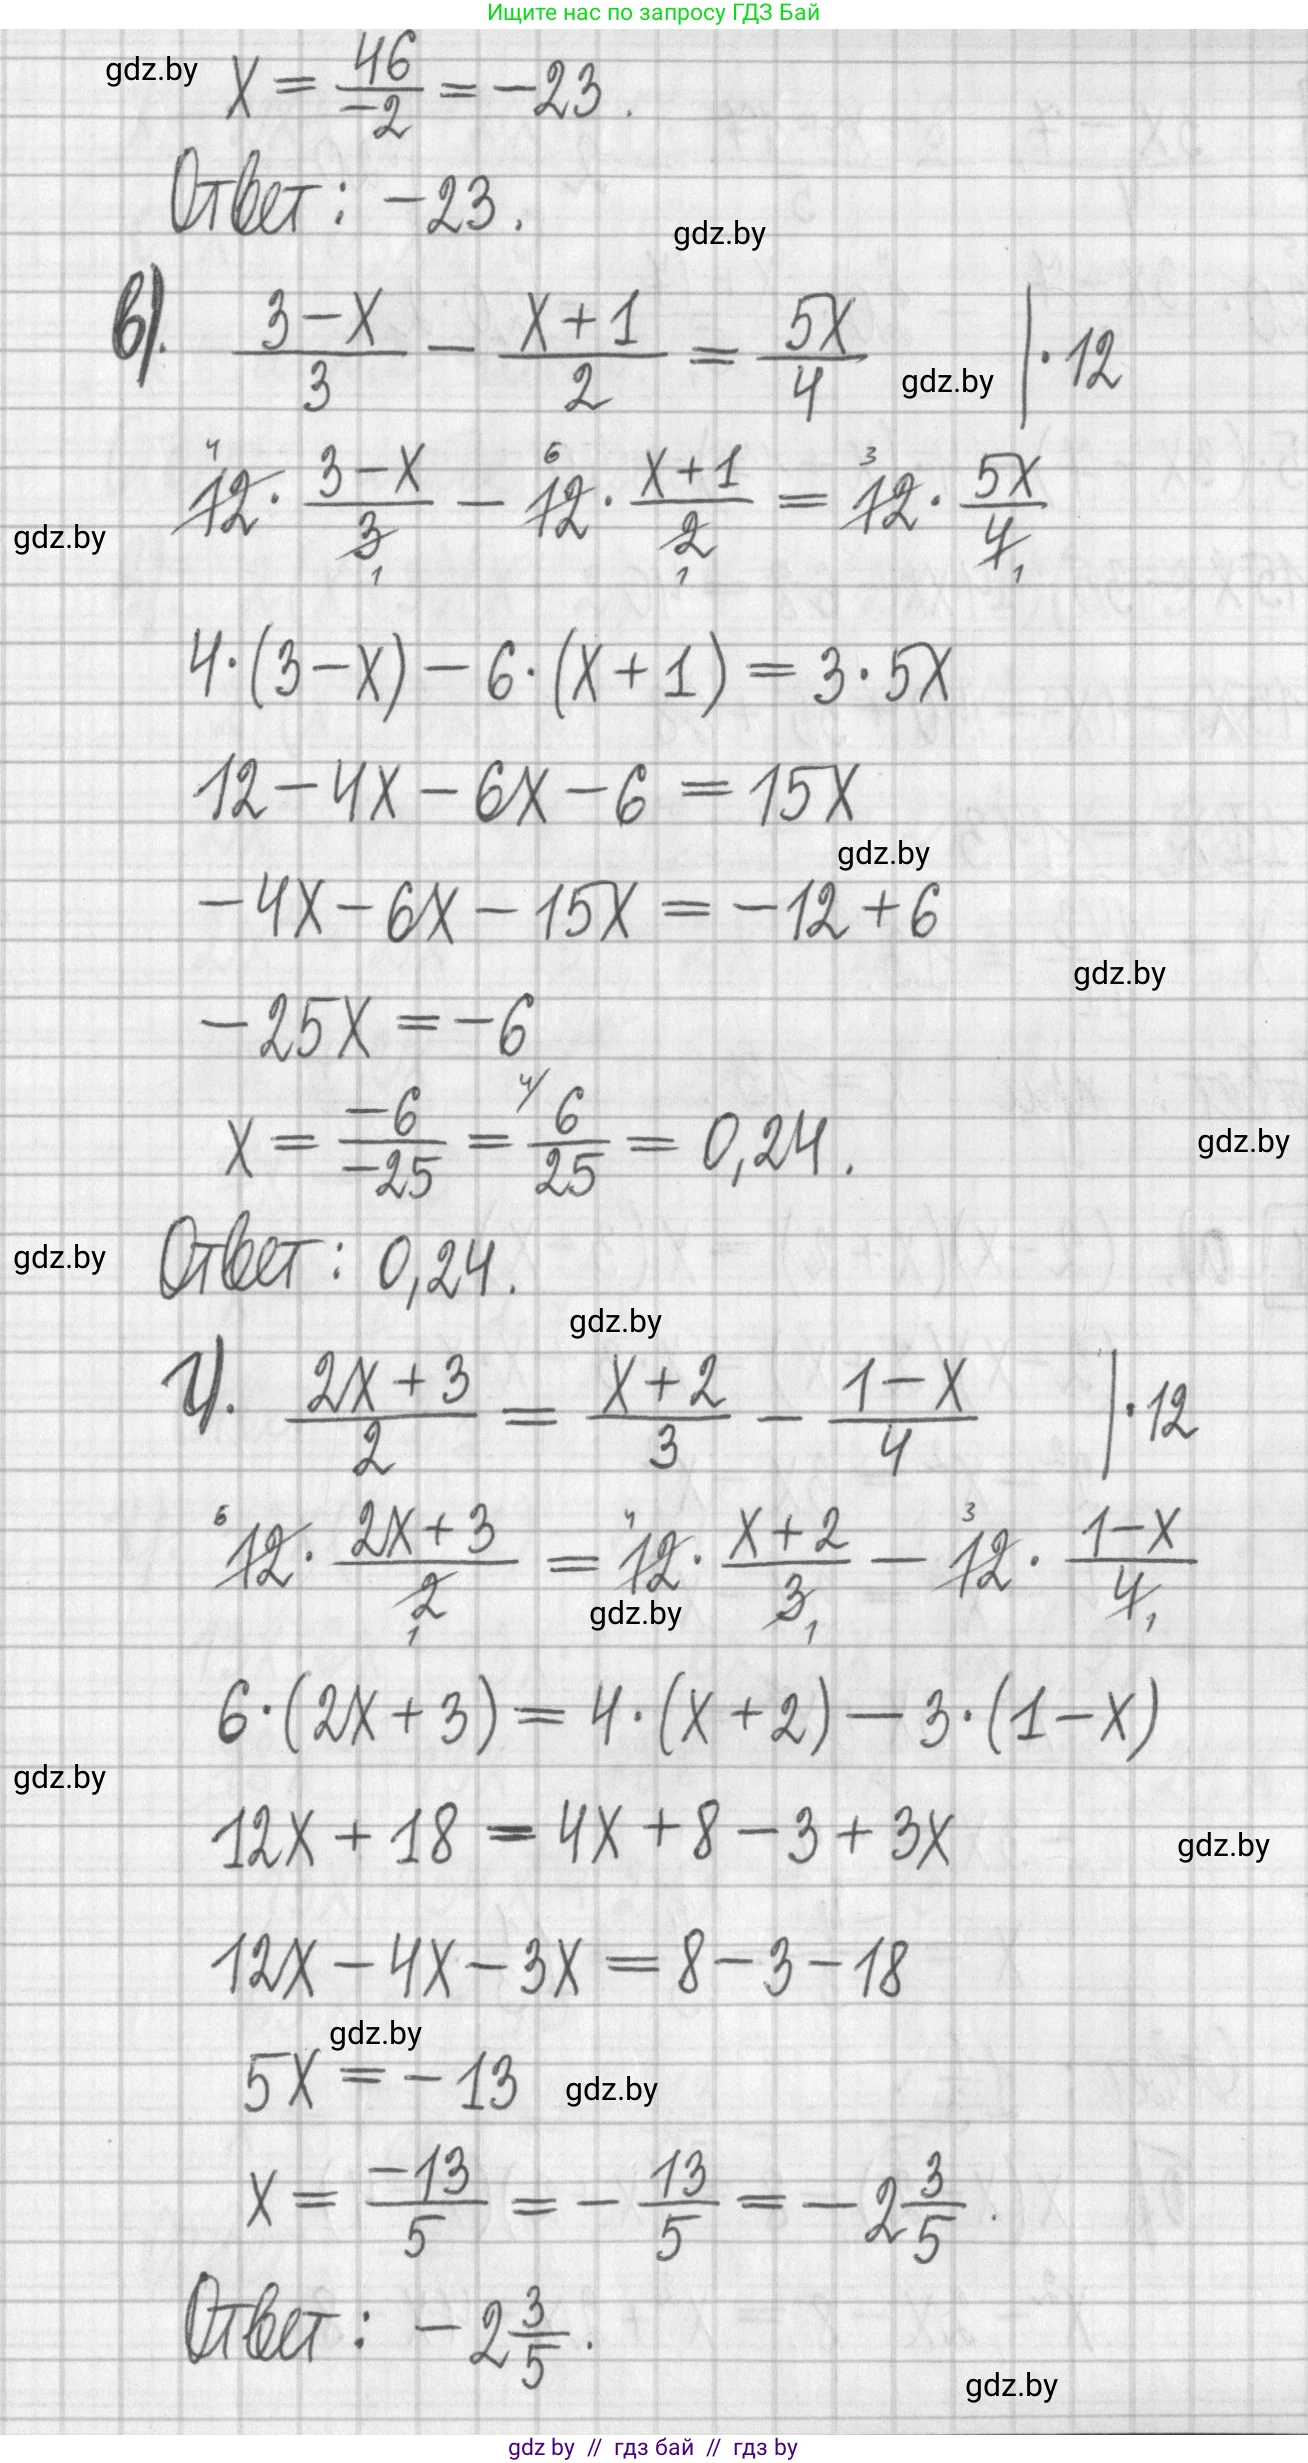 Ищите нас по запросу ГДЗ Бай
gdz.by
x = 46/-2 = -23.
Ответ: -23.
gdz.by
в). (3-x)/3 - (x+1)/2 = 5x/4 | ·12
gdz.by
4 6 3
12 · (3-x)/3 - 12 · (x+1)/2 = 12 · 5x/4
1 1 1
gdz.by
4·(3-x) - 6·(x+1) = 3·5x
12 - 4x - 6x - 6 = 15x
gdz.by
-4x - 6x - 15x = -12 + 6
gdz.by
-25x = -6
x = -6/-25 = 4/ 6/25 = 0,24.
gdz.by
Ответ: 0,24.
gdz.by
gdz.by
г). (2x+3)/2 = (x+2)/3 - (1-x)/4 | ·12
6 4 3
12 · (2x+3)/2 = 12 · (x+2)/3 - 12 · (1-x)/4
1 1 1
gdz.by
6·(2x+3) = 4·(x+2) - 3·(1-x)
gdz.by
12x + 18 = 4x + 8 - 3 + 3x
gdz.by
12x - 4x - 3x = 8 - 3 - 18
gdz.by
5x = -13
gdz.by
x = -13/5 = - 13/5 = -2 3/5.
Ответ: -2 3/5.
gdz.by
gdz by // гдз бай // гдз by